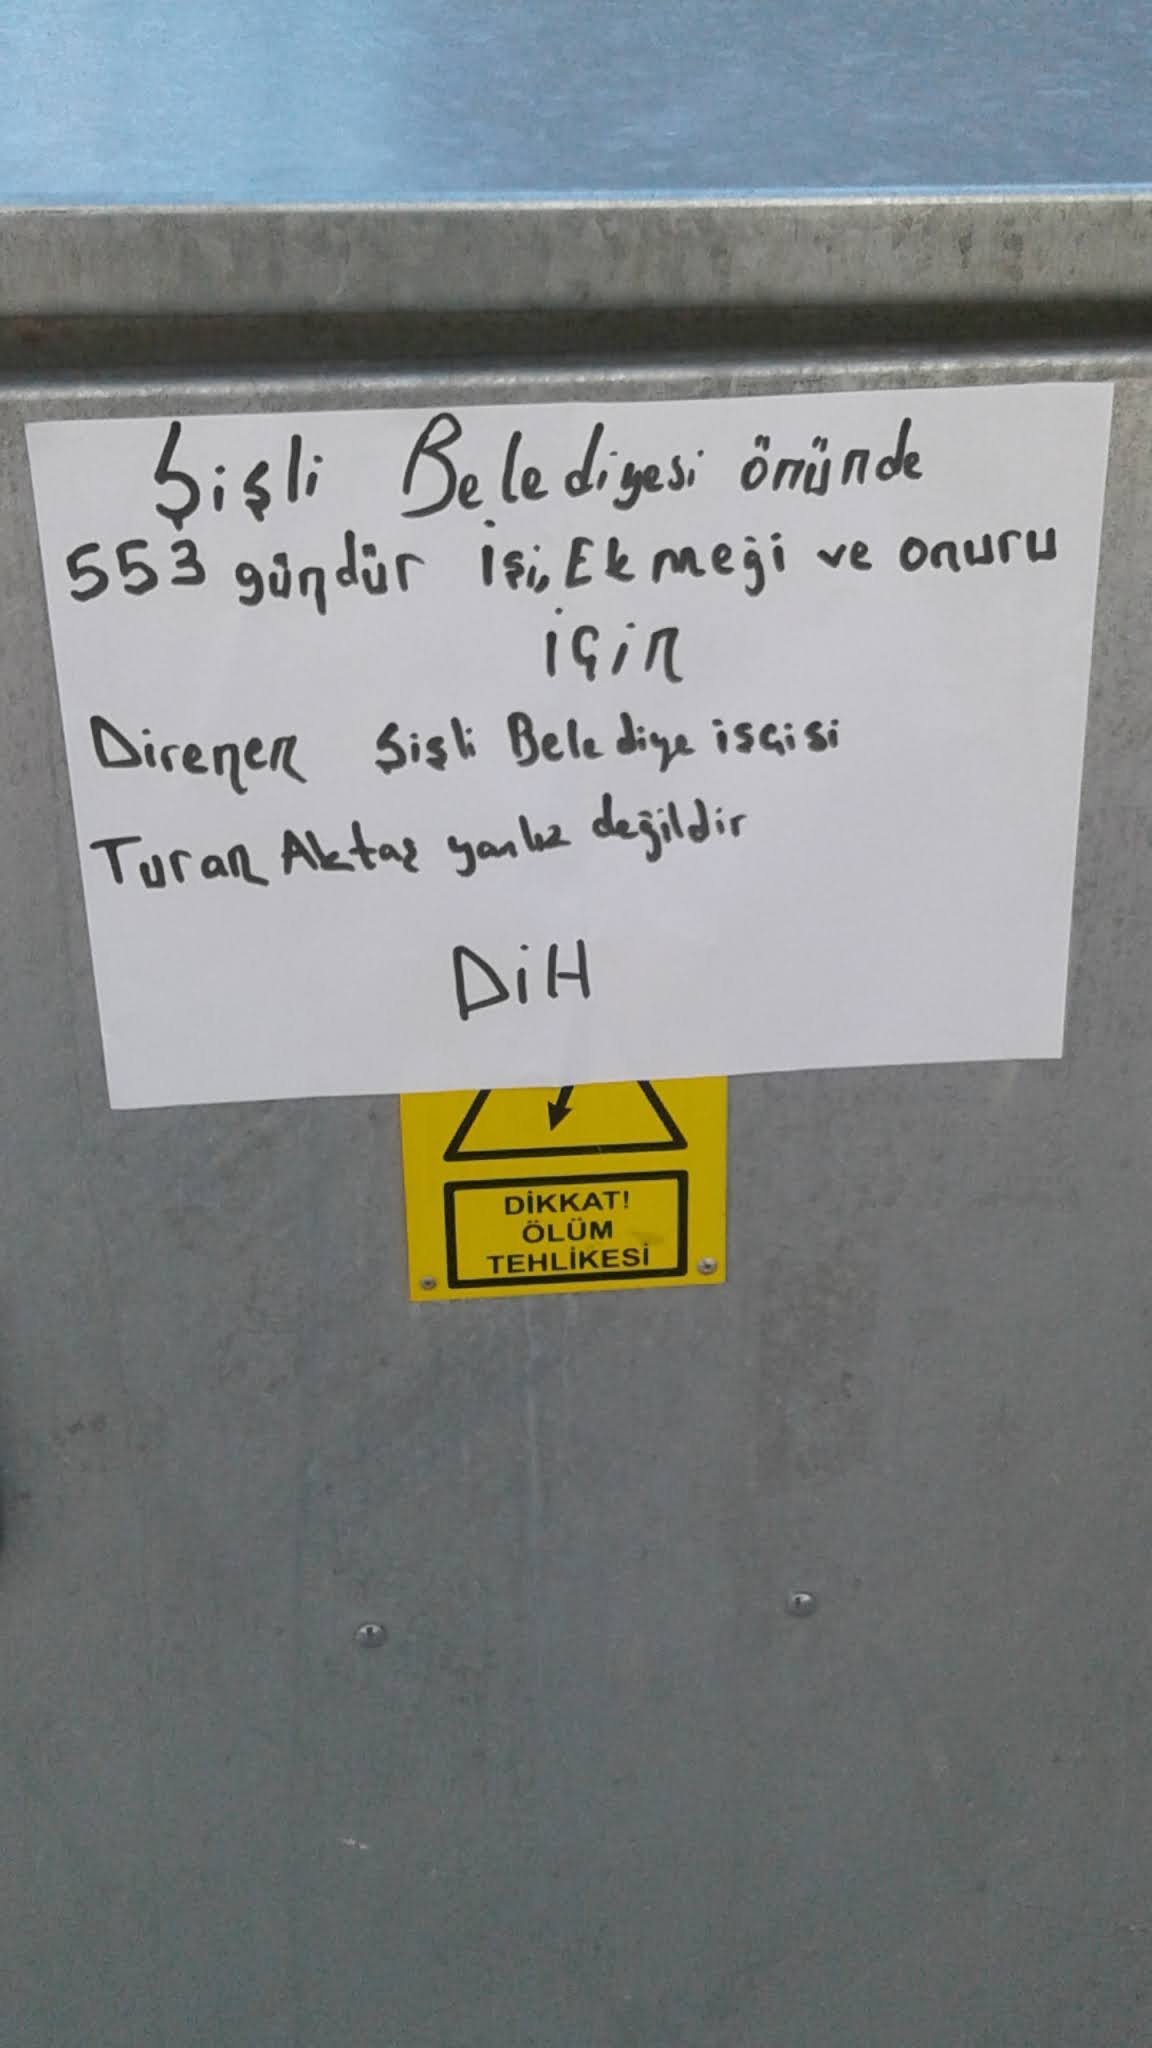 Şişli Belediyesi önünde
553 gündür İşi, Ekmeği ve onuru
için
Direnen Şişli Belediye isçisi
Turan Aktaş yanlız değildir
DİH
DİKKAT!
ÖLÜM
TEHLİKESİ